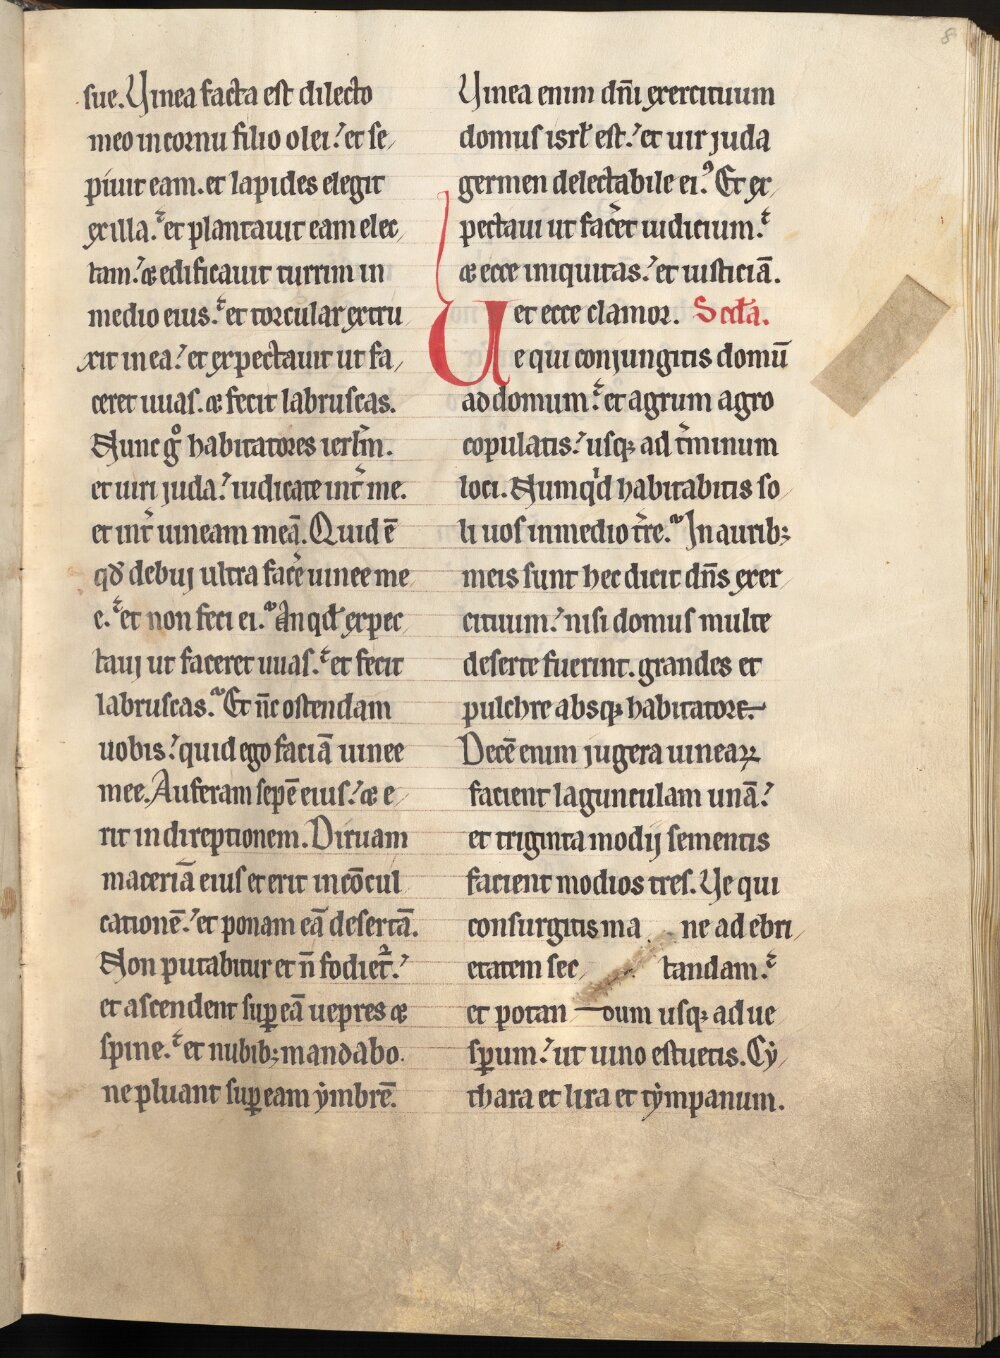 sue. Vinea facta est dilecto
meo in cornu filio olei. et se,
piuit eam. et lapides elegit
ex illa. et plantauit eam elec,
tam. & edificauit turrim in
medio eius. et torcular extru
xit in ea. et expectauit ut fa,
ceret uuas. & fecit labruscas.
Nunc gͦ habitatores ierłm.
et uiri juda. iudicate int̄ me.
et int̄ uineam meā. Quid ē
qđ debuj ultra facē uinee me
e. et non feci ei. An qđ expec
tauj ut faceret uuas. et fecit
labruscas. Et n̄c ostendam
uobis. quid ego faciā uinee
mee. Auferam sepē eius. & e,
rit in direptionem. Diruam
maceriā eius et erit in cōcul
cationē. et ponam eā desertā.
Non putabitur et n̄ fodiet᷑.
et ascendent suꝑ eā uepres &
spine. et nubibꝫ mandabo.
ne pluant suꝑ eam ẏmbrē.
Vinea enim dn̄i exercituum
domus isrł est. et uir juda
germen delectabile ei. Et ex,
pectaui ut fac̄et iudicium.
& ecce iniquitas. et iusticiā.
et ecce clamor. Scďa.
Ve qui conjungitis domū
ad domum. et agrum agro
copulatis. usqꝫ ad t̄minum
loci. Numqͥd habitabitis so,
li uos in medio t̄re. In auribꝫ
meis sunt hec dicit dn̄s exer,
cituum. nisi domus multe
deserte fuerint. grandes et
pulchre absqꝫ habitatore.
Decē enim jugera uineaꝝ
facient lagunculam unā.
et triginta modij sementis
facient modios tres. Ve qui
consurgitis ma ne ad ebri,
etatem sec, tandam.
et potan dum usqꝫ ad ue
sꝑum. ut uino estuetis. Cẏ,
thara et lira et tẏmpanum.
8